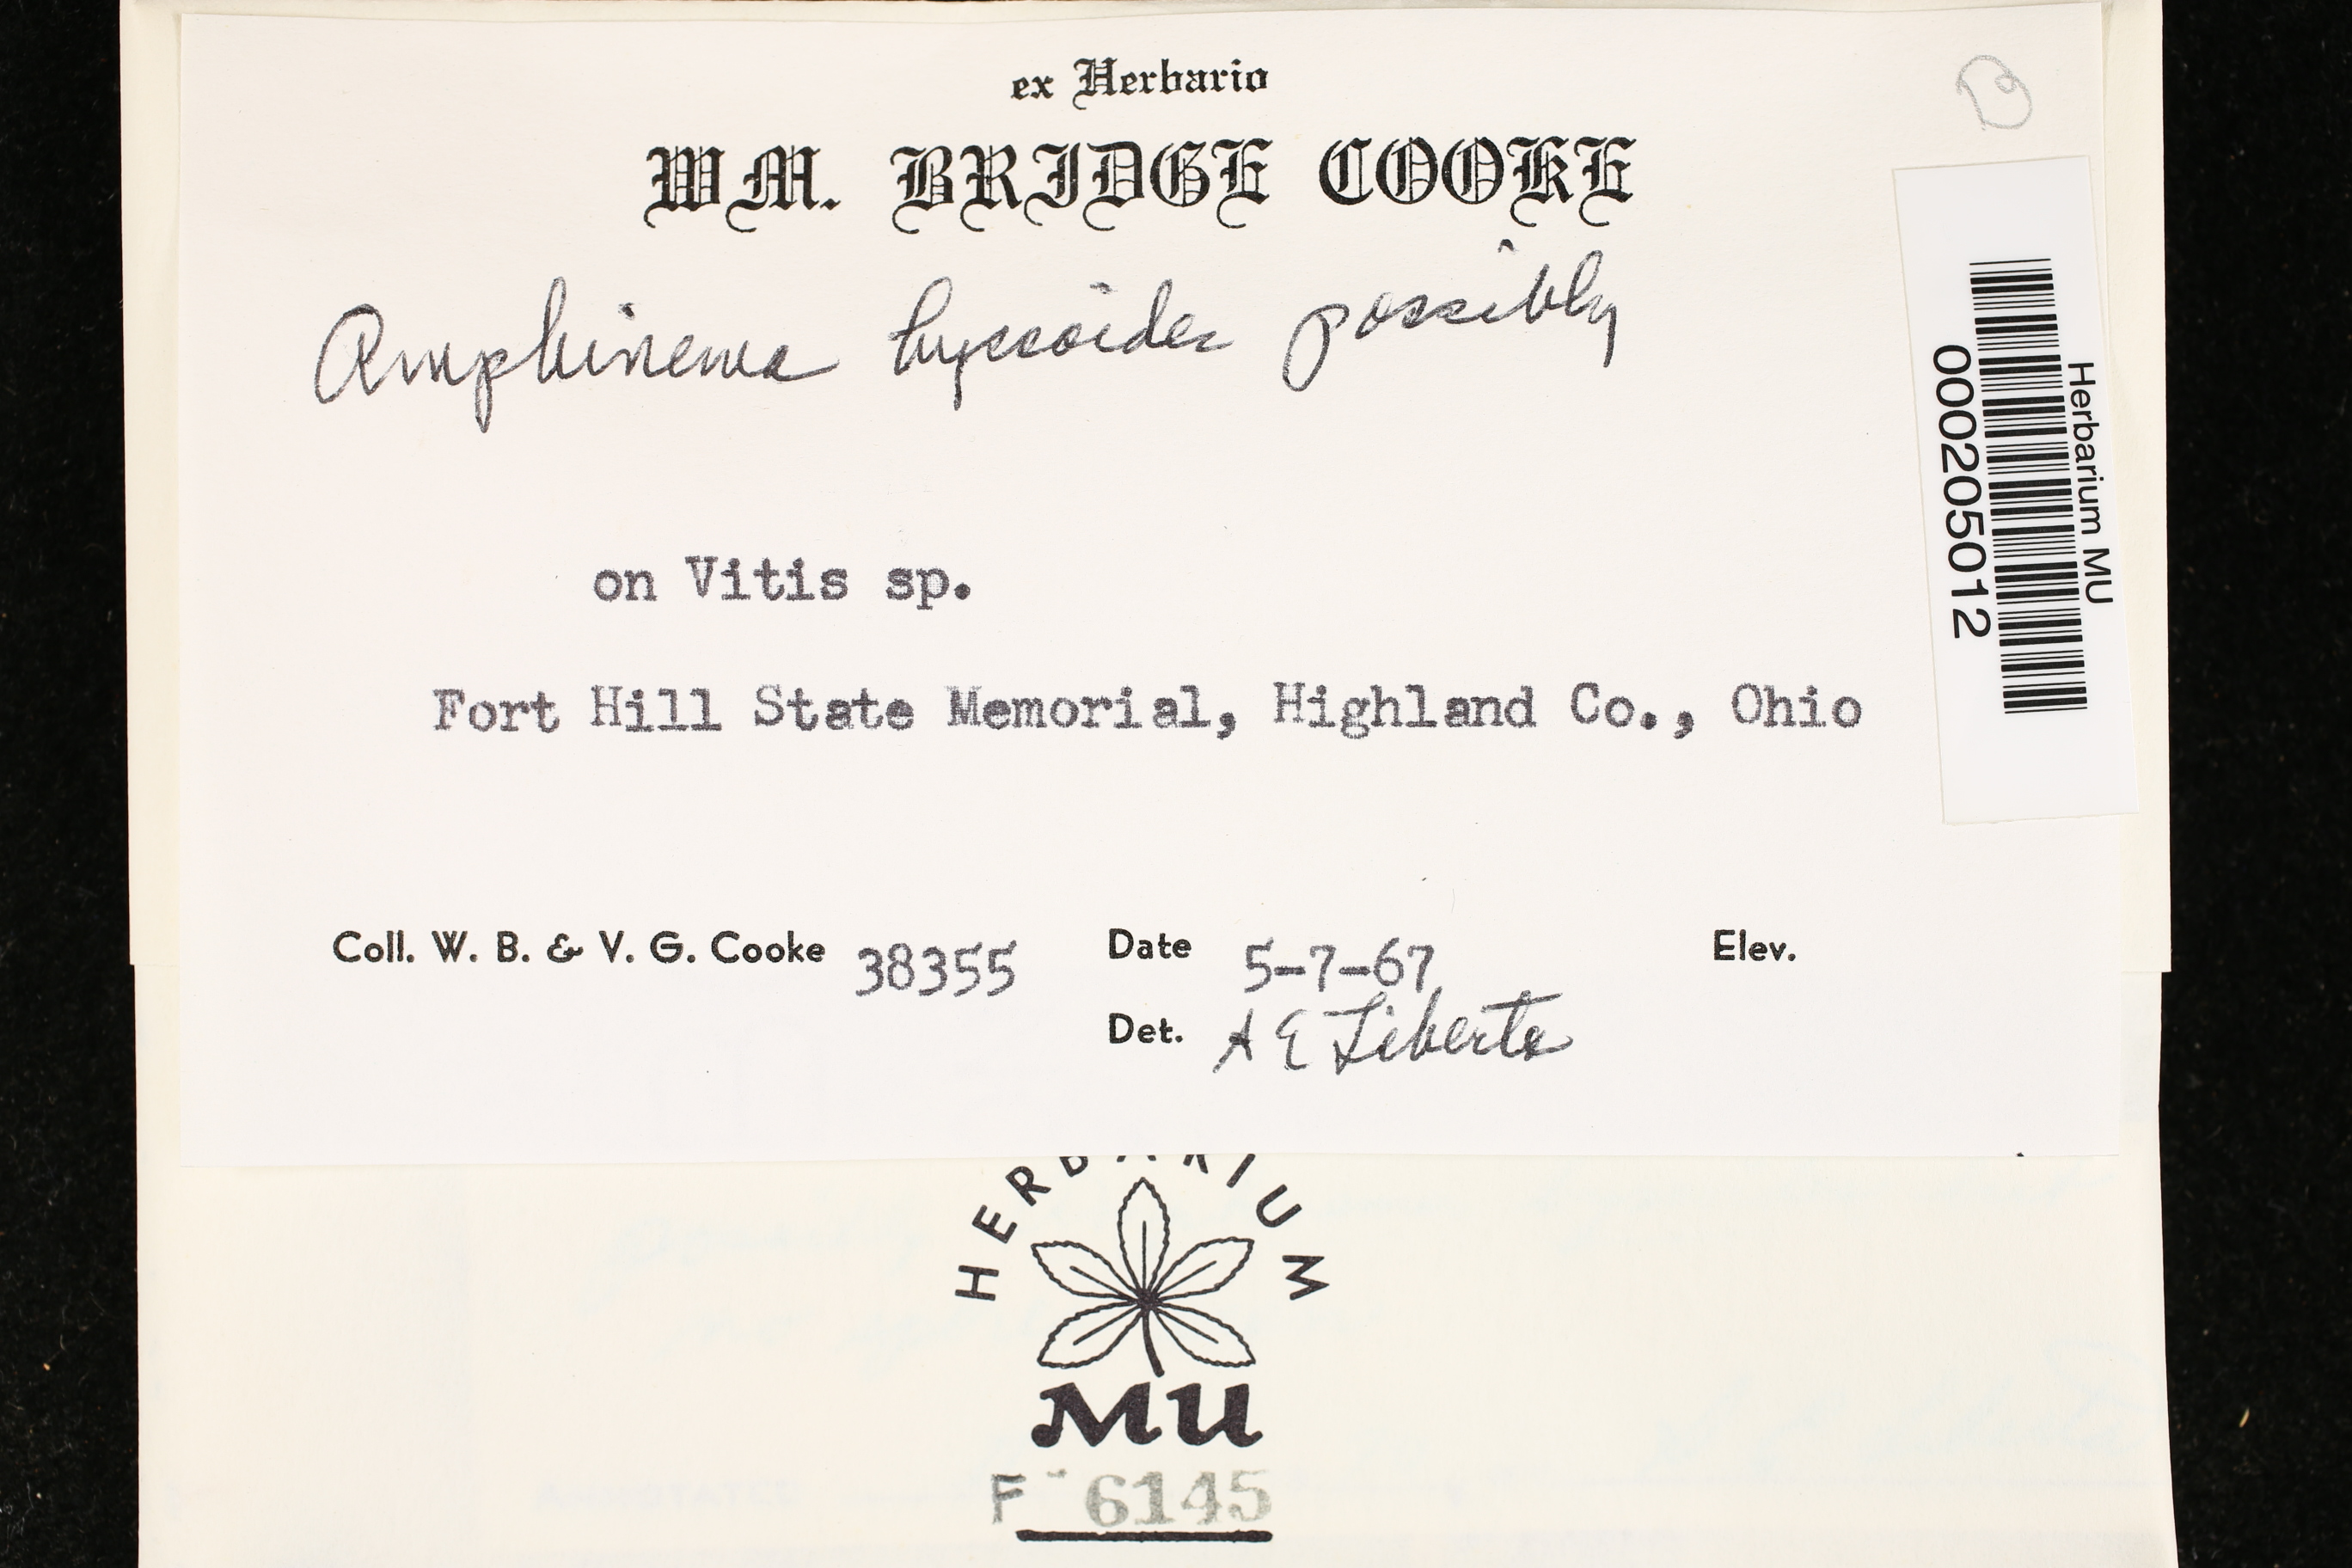 ex Herbario
WM. BRIDGE COOKE
Amphinema byssoides possibly
on Vitis sp.
Fort Hill State Memorial, Highland Co., Ohio
Coll. W. B. & V. G. Cooke 38355 Date 5-7-67 Elev.
Det. A E Liberta
Herbarium MU
000205012
HERBARIUM
MU
F 6145